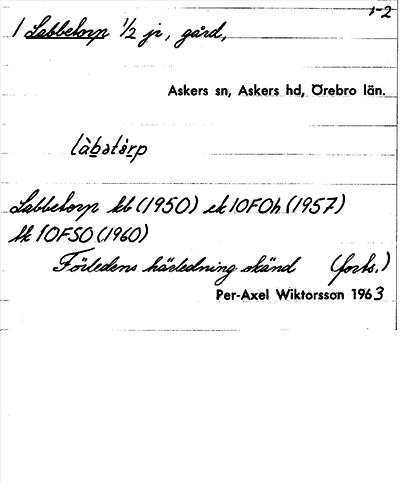 1-2
1 Labbetorp 1/2 jr, gård,
Askers sn, Askers hd, Örebro län.
Labbetorp kb (1950) ek 10FOh (1957)
tk 10FSO (1960)
Förledens härledning okänd (forts.)
Per-Axel Wiktorsson 1963